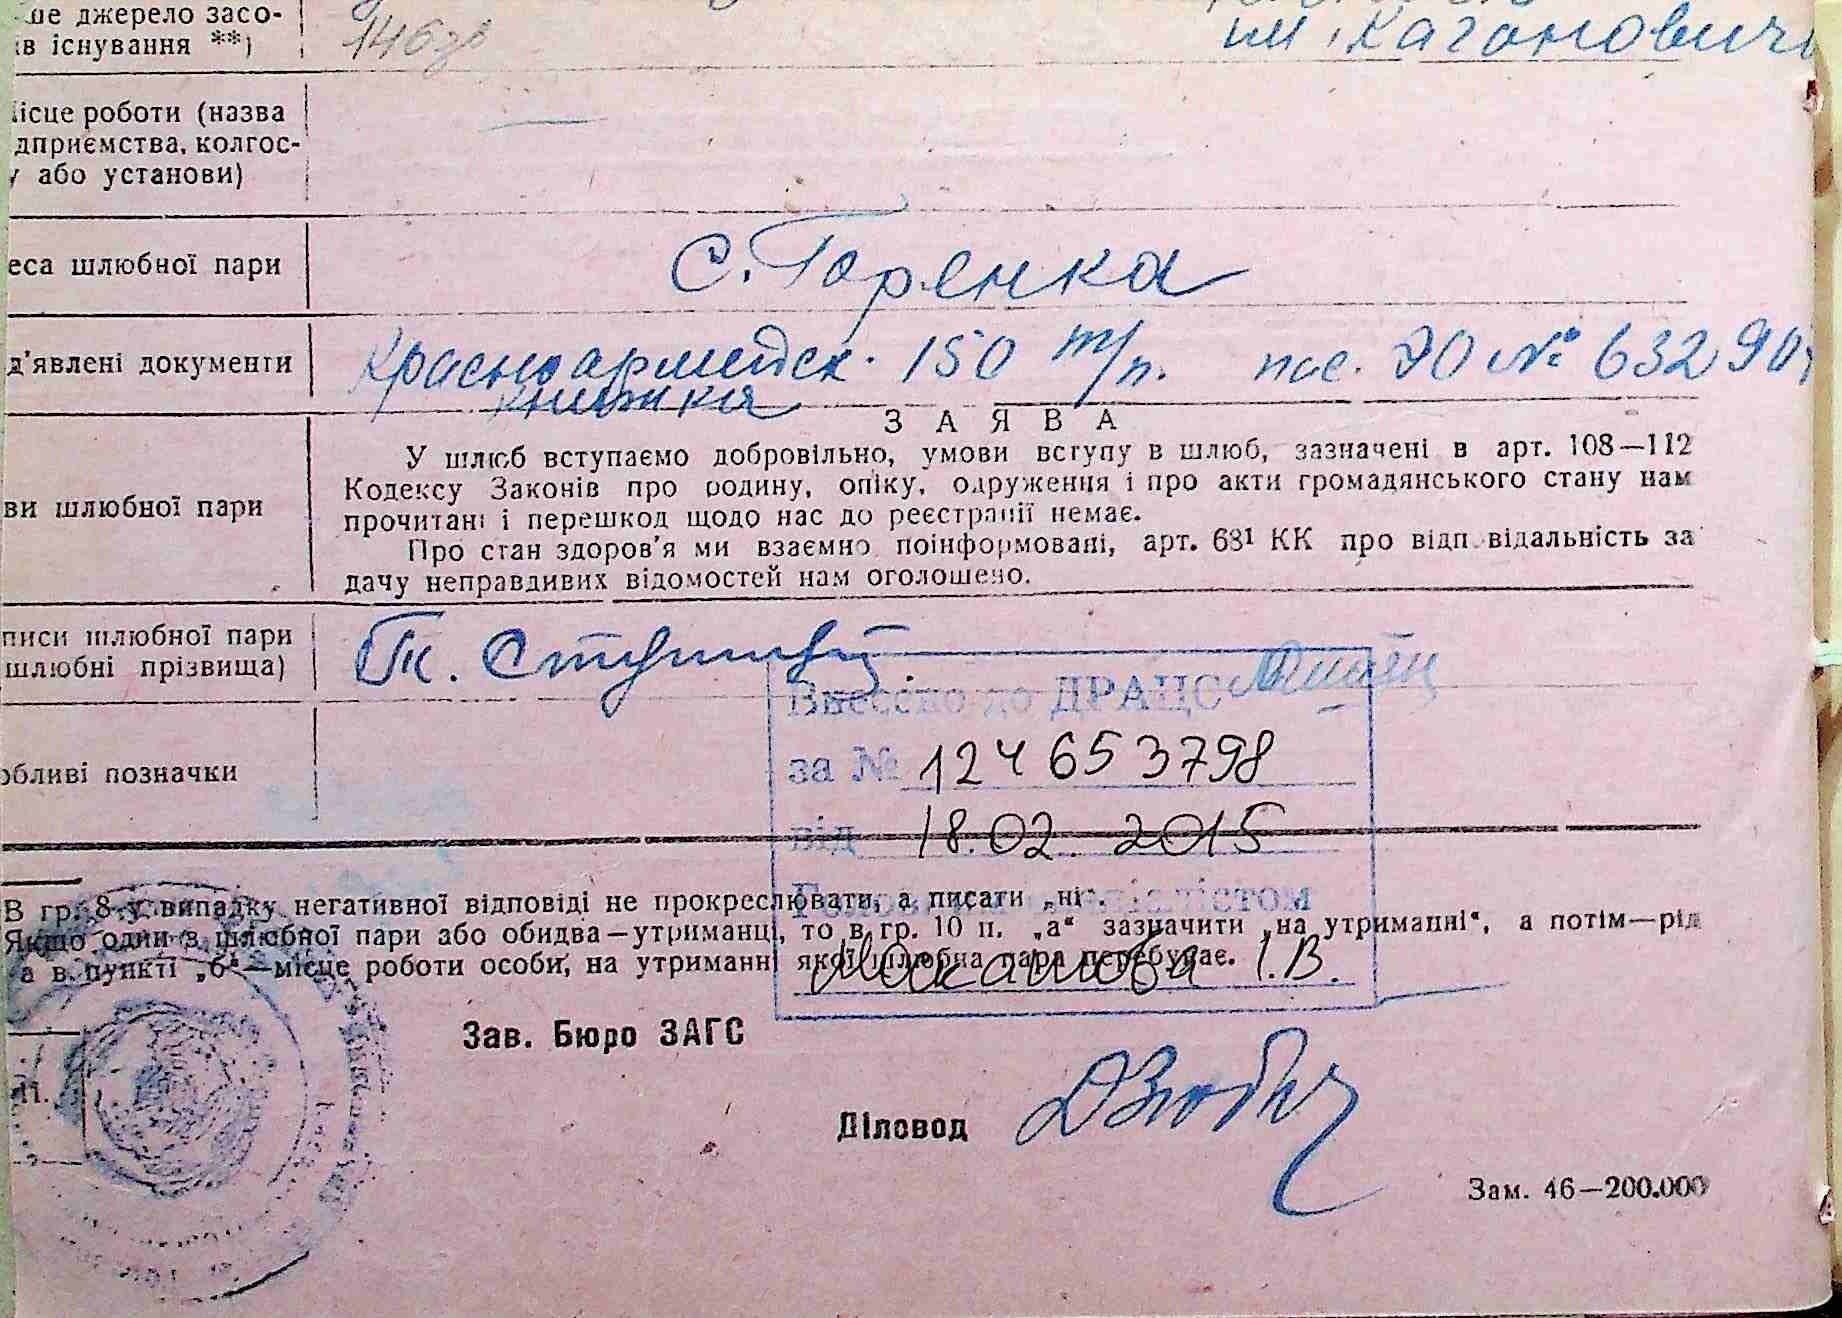 ше джерело засо-
ів існування **)
146 зв
им. Кагановича
ісце роботи (назва
дприємства, колгос-
у або установи)
еса шлюбної пари
с. Горенка
д'явлені документи
Красноармейск. 150 т/п. пас. ЭО № 632904
книжка
З А Я В А
У шлюб вступаємо добровільно, умови вступу в шлюб, зазначені в арт. 108—112
Кодексу Законів про родину, опіку, одруження і про акти громадянського стану нам
прочитані і перешкод щодо нас до реєстрації немає.
ви шлюбної пари
Про стан здоров'я ми взаємно поінформовані, арт. 68¹ КК про відповідальність за
дачу неправдивих відомостей нам оголошено.
писи шлюбної пари
шлюбні прізвища)
Внесено до ДРАЦС
за № 124653798
обливі позначки
від 18.02.2015
Головним спеціалістом
В гр. 8 у випадку негативної відповіді не прокреслювати, а писати „ні".
Якщо один з шлюбної пари або обидва—утриманці, то в гр. 10 п. „а" зазначити „на утриманні", а потім—рід
а в пункті „б"—місце роботи особи, на утриманні якої шлюбна пара перебуває.
І.В.
Зав. Бюро ЗАГС
Діловод
Зам. 46—200.000